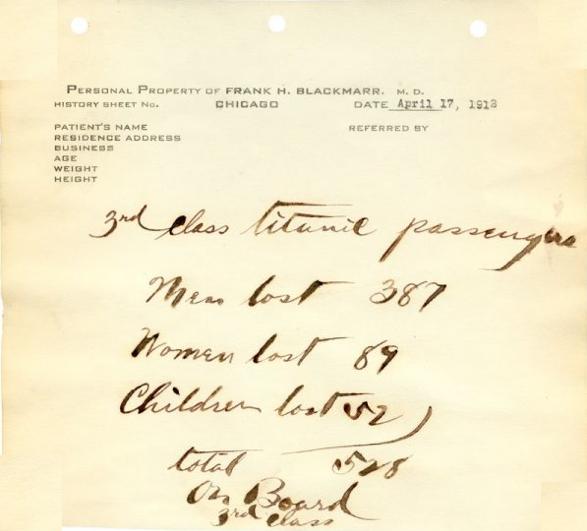 PERSONAL PROPERTY OF FRANK H. BLACKMARR. M. D.
HISTORY SHEET NO. CHICAGO DATE April 17, 1912
PATIENT'S NAME REFERRED BY
RESIDENCE ADDRESS
BUSINESS
AGE
WEIGHT
HEIGHT
3rd class titanic passengers
Men lost 387
Women lost 89
Children lost 52)
total 528
On Board
3rd class